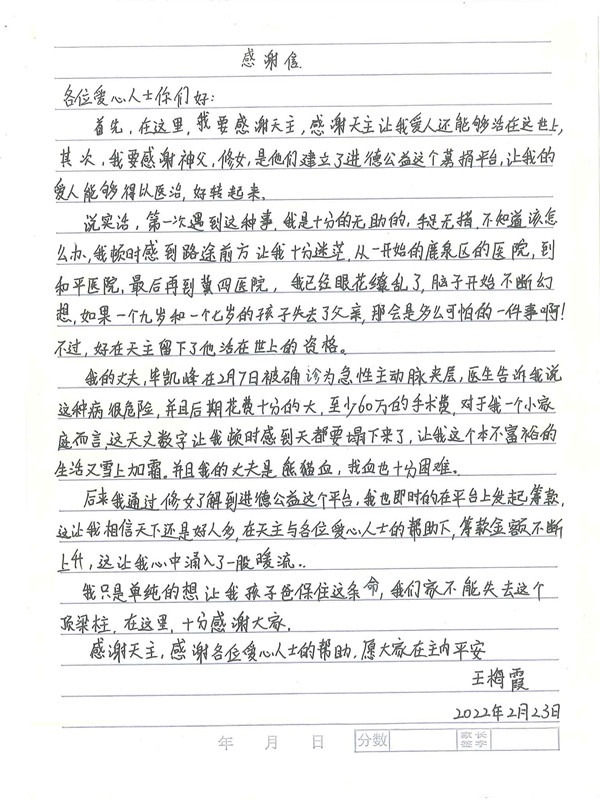 感谢信
各位爱心人士你们好:
首先,在这里,我要感谢天主,感谢天主让我爱人还能够活在这世上,
其次,我要感谢神父,修女,是他们建立了进德公益这个募捐平台,让我的
爱人能够得以医治,好转起来.
说实话,第一次遇到这种事,我是十分的无助的,手足无措,不知道该怎
么办,我顿时感到路途前方让我十分迷茫,从一开始的鹿泉区的医院,到
和平医院,最后再到冀四医院,我已经眼花缭乱了,脑子开始不断幻
想,如果一个九岁和一个七岁的孩子失去了父亲,那会是多么可怕的一件事啊!
不过,好在天主留下了他活在世上的资格。
我的丈夫,毕凯峰在2月7日被确诊为急性主动脉夹层,医生告诉我说
这种病很危险,并且后期花费十分的大,至少60万的手术费,对于我一个小家
庭而言,这天文数字让我顿时感到天都要塌下来了,让我这个本不富裕的
生活又雪上加霜。并且我的丈夫是熊猫血,找血也十分困难。
后来我通过修女了解到进德公益这个平台,我也即时的在平台上发起筹款,
这让我相信天下还是好人多,在天主与各位爱心人士的帮助下,筹款金额不断
上升,这让我心中涌入了一股暖流..
我只是单纯的想让我孩子爸保住这条命,我们家不能失去这个
顶梁柱,在这里,十分感谢大家.
感谢天主,感谢各位爱心人士的帮助,愿大家在主内平安
王梅霞
2022年2月23日
年 月 日 分数 家长签字